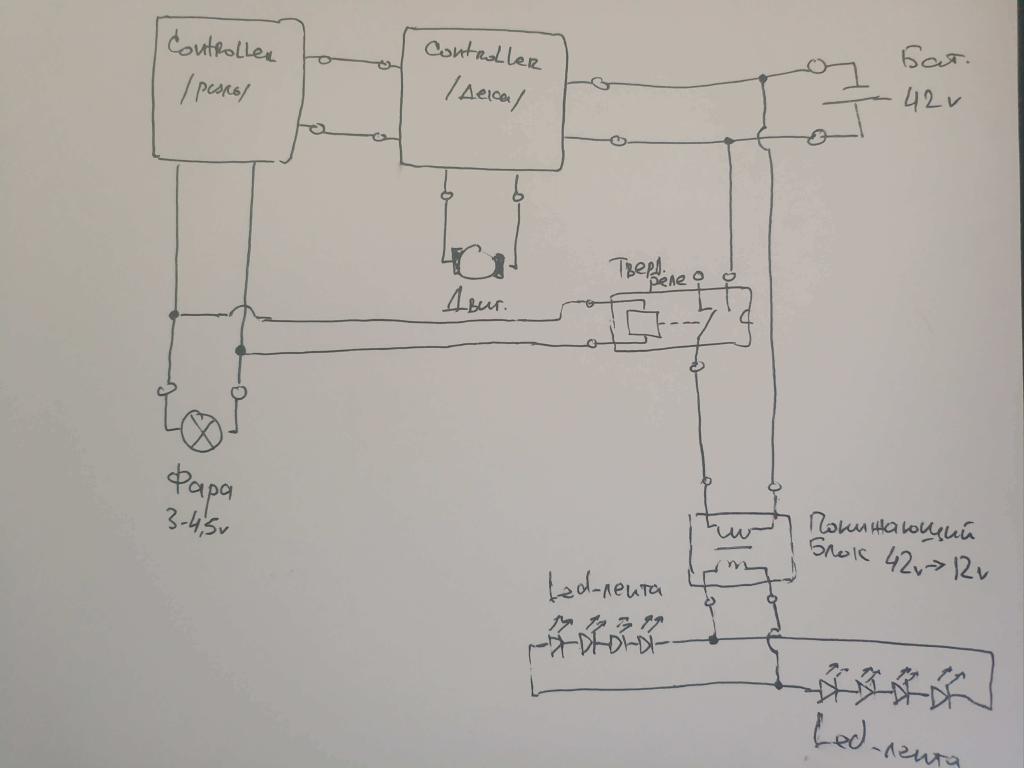 Controller
/руль/
Controller
/Дека/
Бат.
42v
Двиг.
Тверд.
реле
Фара
3-4,5v
Понижающий
Блок 42v→12v
Led-лента
Led-лента